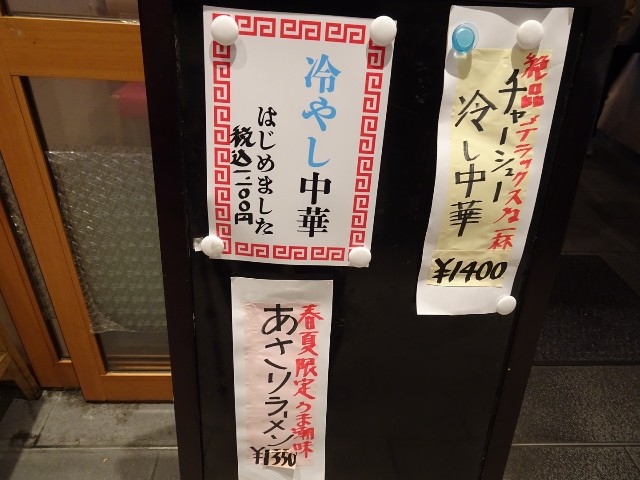 冷やし中華
はじめました
税込1,100円
絶品デラックスな一杯
チャーシュー
冷し中華
¥1400
春夏限定うま潮味
あさりラーメン
¥1350